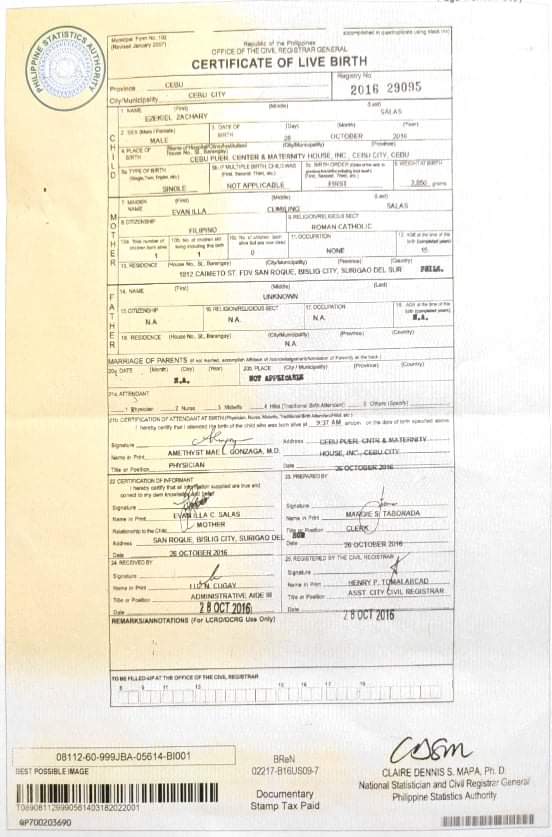 PHILIPPINE STATISTICS AUTHORITY
Municipal Form No. 102
(Revised January 2007)
accomplished in quadruplicate using black ink
Republic of the Philippines
OFFICE OF THE CIVIL REGISTRAR GENERAL
CERTIFICATE OF LIVE BIRTH
Province CEBU
City/Municipality CEBU CITY
Registry No.
2016 29095
CHILD
1. NAME (First) (Middle) (Last)
EZEKIEL ZACHARY SALAS
2. SEX (Male / Female) 3. DATE OF BIRTH (Day) (Month) (Year)
MALE OCTOBER 2016
4. PLACE OF BIRTH (Name of Hospital/Clinic/Institution/ House No., St., Barangay) (City/Municipality) (Province)
CEBU PUER. CENTER & MATERNITY HOUSE, INC. CEBU CITY, CEBU
5a. TYPE OF BIRTH (Single, Twin, Triplet, etc.) 5b. IF MULTIPLE BIRTH, CHILD WAS (First, Second, Third, etc.) 5c. BIRTH ORDER 6. WEIGHT AT BIRTH
SINGLE NOT APPLICABLE FIRST grams
MOTHER
7. MAIDEN NAME (First) (Middle) (Last)
EVAN ILLA SALAS
8. CITIZENSHIP 9. RELIGION/RELIGIOUS SECT
FILIPINO ROMAN CATHOLIC
10a. Total number of children born alive 10b. No. of children still living including this birth 10c. No. of children born alive but are now dead 11. OCCUPATION 12. AGE at the time of this birth (completed years)
1 1 0 NONE 15
13. RESIDENCE (House No., St., Barangay) (City/Municipality) (Province) (Country)
1012 CAIMETO ST. FDV SAN ROQUE, BISLIG CITY, SURIGAO DEL SUR PHIL.
FATHER
14. NAME (First) (Middle) (Last)
UNKNOWN
15. CITIZENSHIP 16. RELIGION/RELIGIOUS SECT 17. OCCUPATION 18. AGE at the time of this birth (completed years)
N.A. N.A. N.A. N.A.
19. RESIDENCE (House No., St., Barangay) (City/Municipality) (Province) (Country)
N.A.
MARRIAGE OF PARENTS (If not married, accomplish Affidavit of Acknowledgement/Admission of Paternity at the back.)
20a. DATE (Month) (Day) (Year) 20b. PLACE (City / Municipality) (Province) (Country)
N.A. NOT APPLICABLE
21a. ATTENDANT
1 Physician 2 Nurse 3 Midwife 4 Hilot (Traditional Birth Attendant) 5 Others (Specify)
21b. CERTIFICATION OF ATTENDANT AT BIRTH (Physician, Nurse, Midwife, Traditional Birth Attendant/Hilot, etc.)
I hereby certify that I attended the birth of the child who was born alive at 9:37 AM am/pm on the date of birth specified above.
Signature Address CEBU PUER. CNTR & MATERNITY
Name in Print AMETHYST MAE L. GONZAGA, M.D. HOUSE, INC., CEBU CITY
Title or Position PHYSICIAN Date 26 OCTOBER 2016
22. CERTIFICATION OF INFORMANT
I hereby certify that all information supplied are true and
correct to my own knowledge and belief
Signature
Name in Print EVAN ILLA C. SALAS
Relationship to the Child MOTHER
Address SAN ROQUE, BISLIG CITY, SURIGAO DEL SUR
Date 26 OCTOBER 2016
23. PREPARED BY
Signature
Name in Print MARGIE S. TABORADA
Title or Position CLERK
Date 26 OCTOBER 2016
24. RECEIVED BY
Signature
Name in Print N. CUGAY
Title or Position ADMINISTRATIVE AIDE III
Date 28 OCT 2016
25. REGISTERED BY THE CIVIL REGISTRAR
Signature
Name in Print HENRY P. TOMALABCAD
Title or Position ASST CITY CIVIL REGISTRAR
Date 28 OCT 2016
REMARKS/ANNOTATIONS (For LCRO/OCRG Use Only)
TO BE FILLED-UP AT THE OFFICE OF THE CIVIL REGISTRAR
8 9 11 13 15 16 17 19
08112-60-999JBA-05614-BI001
BEST POSSIBLE IMAGE
T089081129990561403182022001
QP700203690
BReN
02217-B16US09-7
Documentary
Stamp Tax Paid
CLAIRE DENNIS S. MAPA, Ph. D.
National Statistician and Civil Registrar General
Philippine Statistics Authority